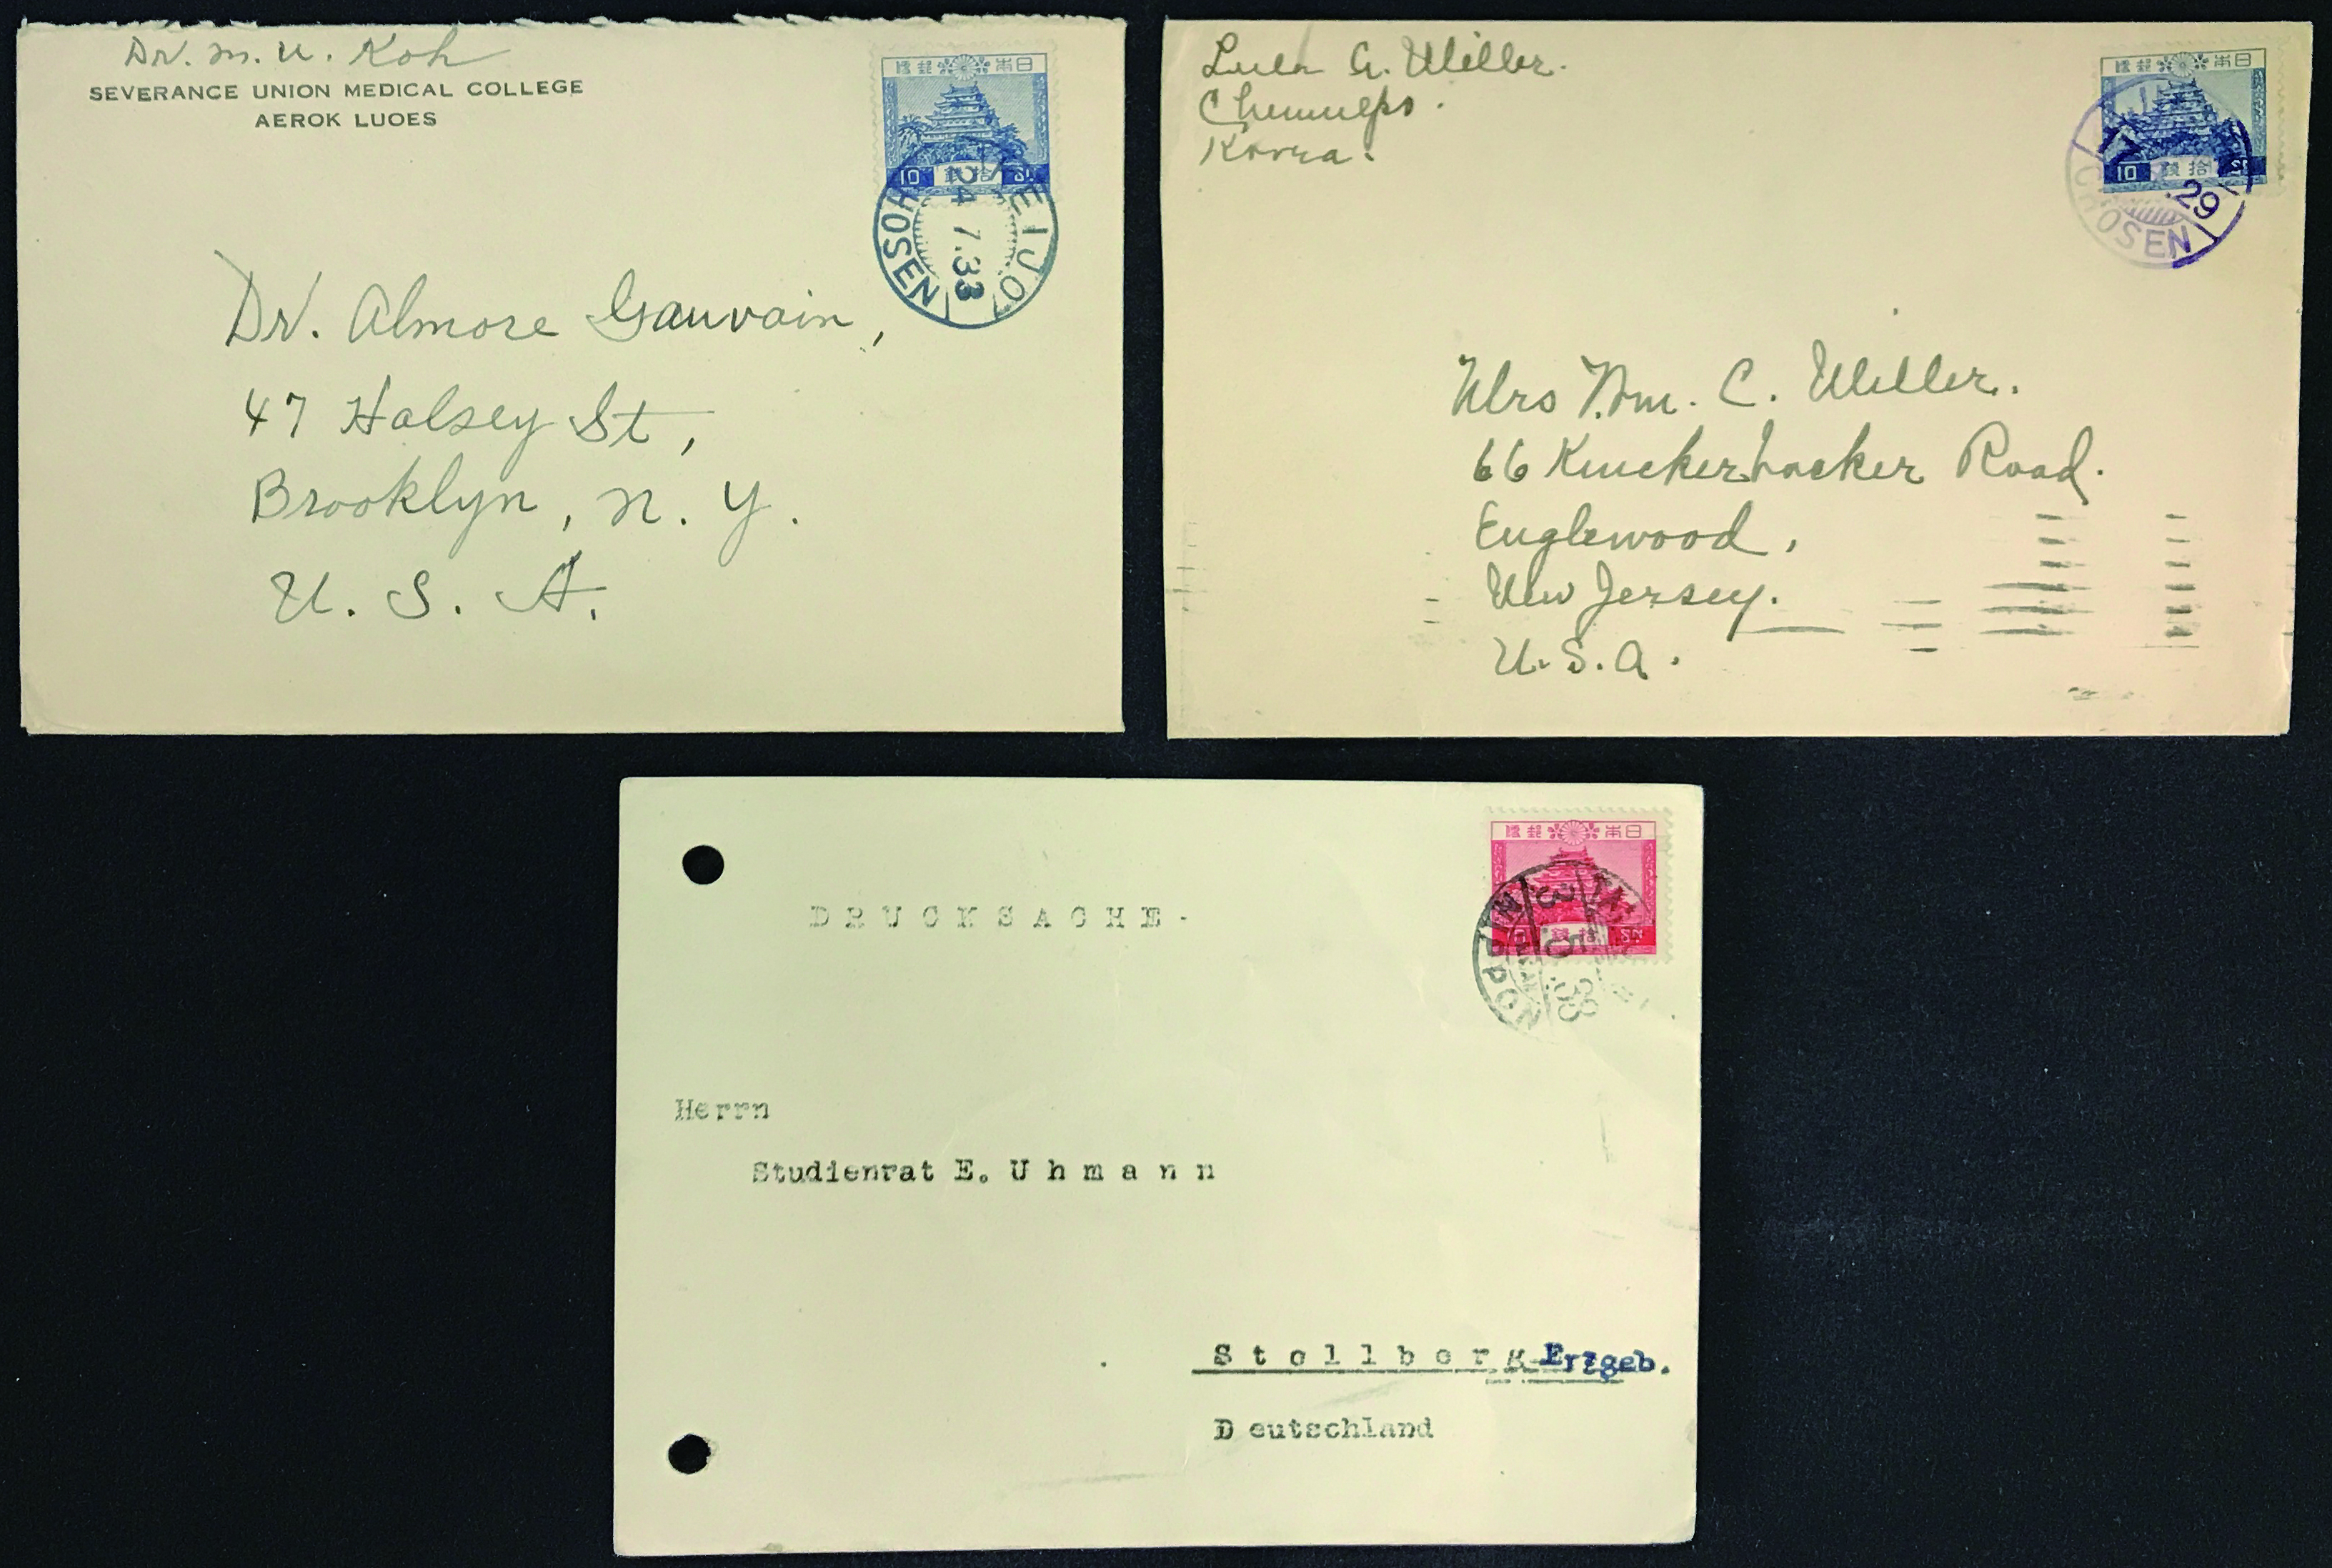 Dr. M. U. Koh
SEVERANCE UNION MEDICAL COLLEGE
AEROK LUOES
日本郵便
10 拾銭 Sn
KEIJO
24.7.33
CHOSEN
Dr. Almore Gauvain,
47 Halsey St,
Brooklyn, N. Y.
U. S. A.
Lula A. Miller.
Chemulpo.
Korea.
日本郵便
10 拾銭 Sn
.29
CHOSEN
Mrs Wm. C. Miller.
66 Knickerbocker Road.
Englewood,
New Jersey.
U.S.A.
日本郵便
拾銭 Sn
3.5.33
NIPPON
DRUCKSACHE-
Herrn
Studienrat E. Uhmann
Stollberg Erzgeb.
Deutschland